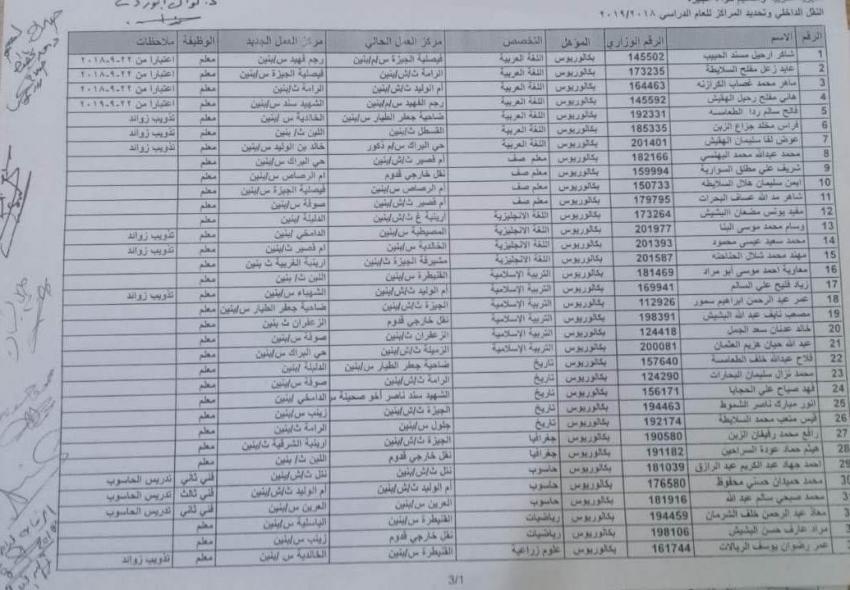 النقل الداخلي وتحديد المراكز للعام الدراسي ٢٠١٩/٢٠١٨
الرقم الاسم الرقم الوزاري المؤهل التخصص مركز العمل الحالي مركز العمل الجديد الوظيفة ملاحظات
1 شاكر ارحيل مسند الحبيب 145502 بكالوريوس اللغة العربية فيصلية الجيزة س/م/بنين رجم فهيد س/بنين معلم اعتبارا من ٢٢-٩-٢٠١٨
2 عايد زعل مفلح السلايطة 173235 بكالوريوس اللغة العربية الرامة ث/ش/بنين فيصلية الجيزة س/بنين معلم اعتبارا من ٢٢-٩-٢٠١٨
3 ماهر محمد غصاب الكرازنه 164463 بكالوريوس اللغة العربية ام الوليد ث/ش/بنين الرامة ث/بنين معلم اعتبارا من ٢٢-٩-٢٠١٨
4 هاني مفلح رحيل الهقيش 145592 بكالوريوس اللغة العربية رجم الفهيد س/م/بنين الشهيد سند س/بنين معلم اعتبارا من ٢٢-٩-٢٠١٩
5 فالح سالم ردا الطعامسه 192331 بكالوريوس اللغة العربية ضاحية جعفر الطيار س/بنين الخالدية س/بنين معلم تذويب زوائد
6 فراس مخلد جزاع الزبن 185335 بكالوريوس اللغة العربية القسطل ث/بنين اللبن ث/ بنين معلم تذويب زوائد
7 عوض لفا سليمان الهقيش 201401 بكالوريوس اللغة العربية حي البراك س/م ذكور خالد بن الوليد س/بنين معلم تذويب زوائد
8 محمد عبدالله محمد البهنسي 182166 بكالوريوس معلم صف ام قصير ث/ش/بنين حي البراك س/بنين معلم
9 شريف علي مطلق السوارية 159994 بكالوريوس معلم صف نقل خارجي قدوم ام الرصاص س/بنين معلم
10 ايمن سليمان هلال السلايطه 150733 بكالوريوس معلم صف ام الرصاص س/بنين فيصلية الجيزة س/بنين معلم
11 شاهر مد الله عساف البحرات 179795 بكالوريوس معلم صف ام قصير ث/ش/بنين صوفة س/بنين معلم
12 مفيد يونس مضعان البشيش 173264 بكالوريوس اللغة الانجليزية ارينبة غ ث/ش/بنين الدليلة /بنين معلم
13 وسام محمد موسى البنا 201977 بكالوريوس اللغة الانجليزية المصيطبة س/بنين الدامخي /بنين معلم تذويب زوائد
14 محمد سعيد عيسى محمود 201393 بكالوريوس اللغة الانجليزية الخالدية س/بنين ام قصير ث/بنين معلم تذويب زوائد
15 مهند محمد شلال الحناحنه 201587 بكالوريوس اللغة الانجليزية مشيرفة الجيزة ث/بنين ارينبة الغربية ث بنين معلم
16 معاوية احمد موسى أبو مراد 181469 بكالوريوس التربية الإسلامية القنيطرة س/بنين اللبن ث/ بنين معلم
17 زياد فليح علي السالم 169941 بكالوريوس التربية الإسلامية ام الوليد ث/ش/بنين الشهباء س/بنين معلم تذويب زوائد
18 عمر عبد الرحمن ابراهيم سمور 112926 بكالوريوس التربية الإسلامية الجيزة ث/ش/بنين ضاحية جعفر الطيار س/بنين معلم
19 مصعب نايف عبد الله البشيش 198391 بكالوريوس التربية الإسلامية نقل خارجي قدوم الزعفران ث بنين معلم
20 خالد عدنان سعد الجمل 124418 بكالوريوس التربية الإسلامية الزعفران ث/بنين صوفة س/بنين معلم
21 عبد الله حيان هزيم العثمان 200081 بكالوريوس التربية الإسلامية الزميلة ث/ش/بنين حي البراك س/بنين معلم
22 فلاح عبدالله خلف الطعامسة 157640 بكالوريوس تاريخ ضاحية جعفر الطيار س/بنين الدليلة /بنين معلم
23 محمد نزال سليمان البحارات 124290 بكالوريوس تاريخ الرامة ث/ش/بنين صوفة س/بنين معلم
24 فهد صباح علي الحجايا 156171 بكالوريوس تاريخ الشهيد سند ناصر أخو صحينة س الدامخي /بنين معلم
25 انور مبارك ناصر الشموط 194463 بكالوريوس تاريخ الجيزة ث/ش/بنين زينب س/بنين معلم
26 قيس متعب محمد السلايطة 192174 بكالوريوس تاريخ جلول س/بنين الرامة ث/بنين معلم
27 رافع محمد رفيفان الزبن 190580 بكالوريوس جغرافيا الجيزة ث/ش/بنين ارينبة الشرقية ث/بنين معلم
28 هيثم حماد عودة السراحين 191182 بكالوريوس جغرافيا نقل خارجي قدوم اللبن ث/ بنين معلم
29 احمد جهاد عبد الكريم عبد الرازق 181039 بكالوريوس حاسوب نتل ث/ش/بنين نتل ث/ش/بنين فني ثاني تدريس الحاسوب
30 محمد حميدان حسني محفوظ 176580 بكالوريوس حاسوب ام الوليد ث/ش/بنين ام الوليد ث/ش/بنين فني ثالث تدريس الحاسوب
محمد صبحي سالم عبد الله 181916 بكالوريوس حاسوب العرين س/بنين العرين س/بنين فني ثاني تدريس الحاسوب
معاذ عبد الرحمن خلف الشرمان 194459 بكالوريوس رياضيات القنيطرة س/بنين الياسلية س/بنين معلم
مراد عارف حسن البشيش 198106 بكالوريوس رياضيات نقل خارجي قدوم زينب س/بنين معلم
عمر رضوان يوسف الريالات 161744 بكالوريوس علوم زراعية القنيطرة س/بنين الخالدية س/بنين معلم تذويب زوائد
3/1